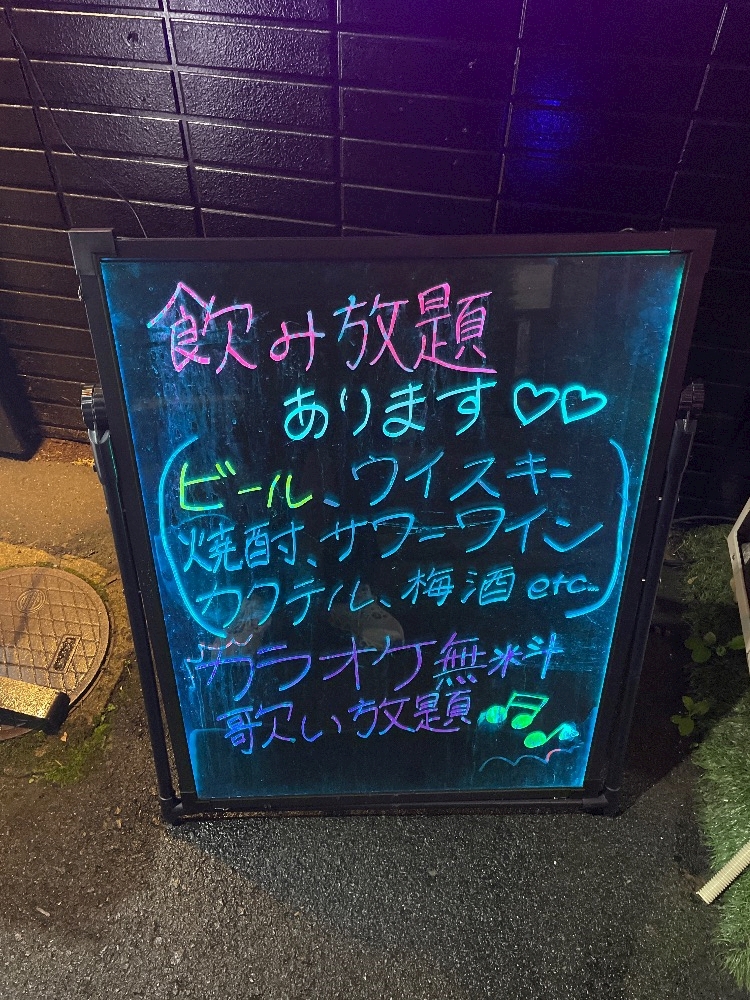 飲み放題
あります♡♡
(ビール、ウイスキー
焼酎、サワーワイン
カクテル、梅酒 etc...)
カラオケ無料
歌い放題♫♪